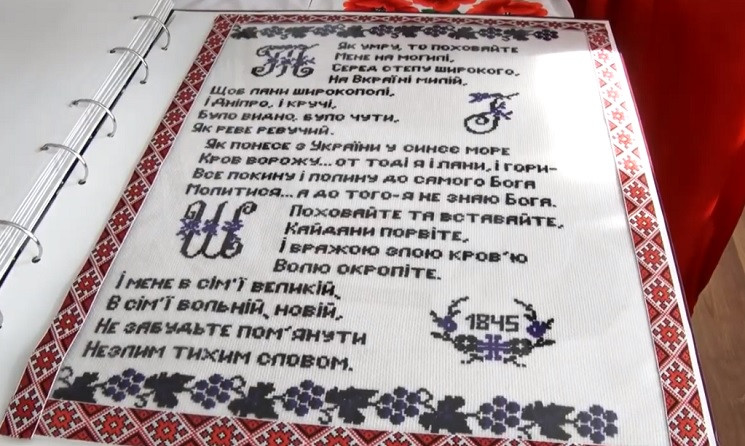 Т
Як умру, то поховайте
Мене на могилі,
Серед степу широкого,
На Вкраїні милій,
Щоб лани широкополі,
І Дніпро, і кручі,
Було видно, було чути,
Як реве ревучий.
Г
Як понесе з України у синєє море
Кров ворожу... от тоді я і лани, і гори–
Все покину і полину до самого Бога
Молитися... а до того–я не знаю Бога.
Ш
Поховайте та вставайте,
Кайдани порвіте,
І вражою злою кров'ю
Волю окропіте.
І мене в сім'ї великій,
В сім'ї вольній, новій,
Не забудьте пом'янути
Незлим тихим словом.
1845